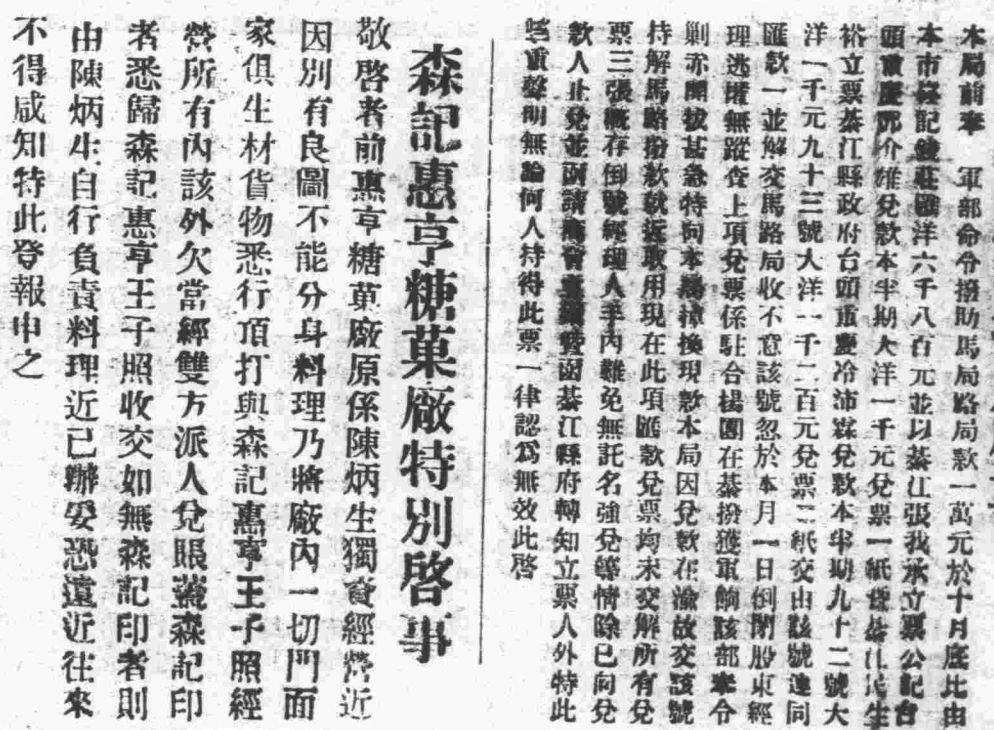 本局前奉　軍部命令撥助馬局路局款一萬元於十月底比由
本市森記錢莊匯洋六千八百元並以綦江張我承立票公記台
頭重慶鄧介雄兌款本半期大洋一千元兌票一紙
裕立票綦江縣政府台頭重慶冷沛霖兌款本半期九十二號大
洋一千元九十三號大洋一千二百元兌票二紙交由該號連同
匯款一並解交馬路局收不意該號忽於本月一日倒閉股東經
理逃匿無蹤查上項兌票係駐合楊團在綦撥獲軍餉該部奉令
剿赤開拔甚急特向本局掉換現款本局因兌款在渝故交該號
持解馬路撥款就近取用現在此項匯款兌票均未交解所有兌
票三張概存倒號經理人手內難免無託名強兌等情除已向兌
款人止兌並函請商會函綦江縣府轉知立票人外特此
鄭重聲明無論何人持得此票一律認為無效此啓
森記惠亨糖菓廠特別啓事
敬啓者前惠亨糖菓廠原係陳炳生獨資經營近
因別有良圖不能分身料理乃將廠內一切門面
家俱生材貨物悉行頂打與森記惠亨王子照經
營所有內該外欠當經雙方派人兌賬蓋森記印
者悉歸森記惠亨王子照收交如無森記印者則
由陳炳生自行負責料理近已辦妥恐遠近往來
不得咸知特此登報申之